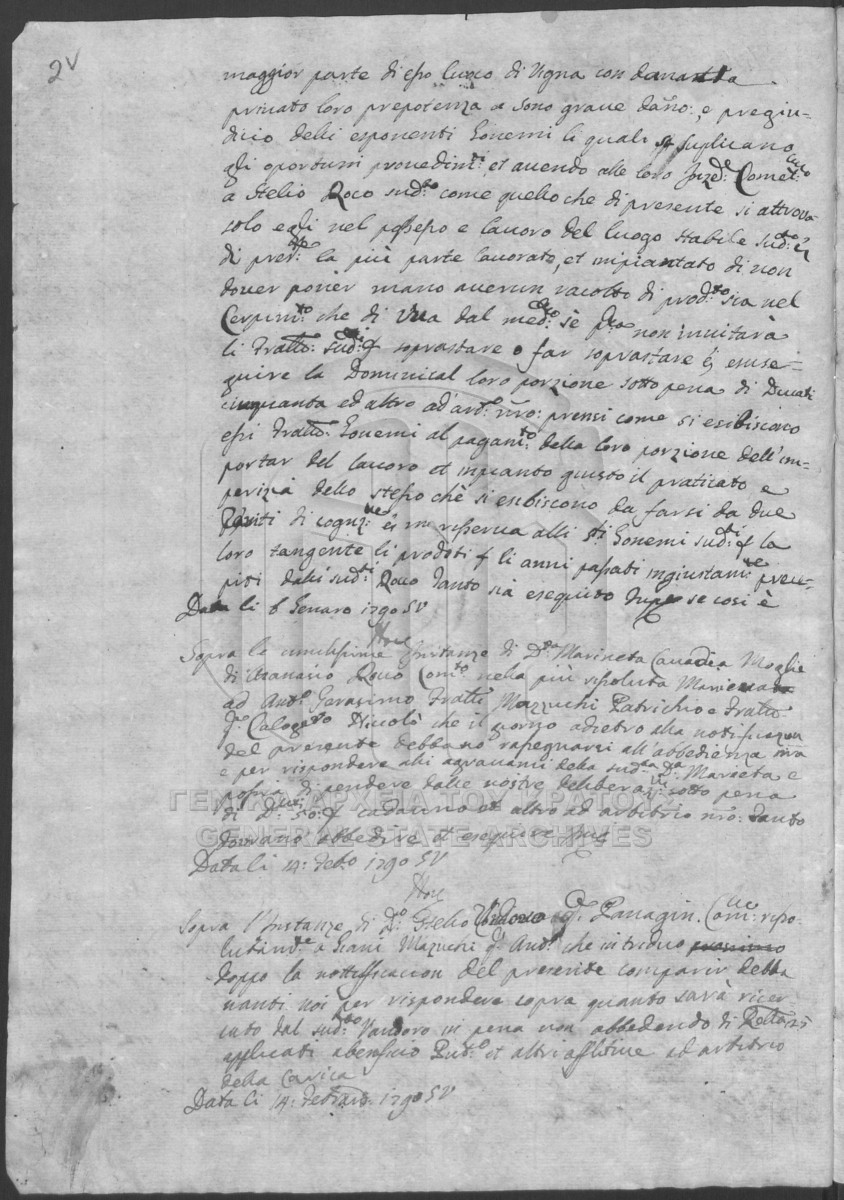 2v
maggior parte di esso luoco di Vigna con dannata
privato loro prepotenza a sono grave daño:, e pregiu-
dicio delli esponenti Gonemi li quali suplicano
gli oportuni provedim:ti, et avendo alle loro Com:
a Stelio Roco sud:to come quello che di presente si attrova
solo egli nel possesso e lavoro del luogo stabile sud:to
di la più parte lavorato, et impiantato di non
dover poner mano averun racolto di prod:to sia nel
che di Uva dal med:o sè non invitarà
li Fratti: sud:ti soprastare o far soprastare esse-
guire la Dominical loro porzione sotto pena di Ducati
cinquanta ed altro ad'arb:o nro: prensi come si esibiscono
essi Fratti: Gonemi al pagam:to della loro porzione dell'im-
portar del lavoro et impianto giusto il praticato e
perizia dello stesso chè si esibiscono da farsi da due
Periti di cogniz:ne riserva alli Gonemi sud:ti la
loro tangente li prodoti li anni passati ingiustam:te prece-
piti dalli sud:ti Roco Tanto sia eseguito se cosi è
Data li 6 Genaro 1790 SV
Sopra le instanze di D:a Marineta Cavadea Moglie
di Atanasio Roco Com:to nella più risoluta Maniera
ad And:o Gerasimo Fratti Mazzuchi Patrichio e Fratti
q:m Calogero Nicolò che il giorno adietro alla notificazion
del presente debbano rasegnarsi all'abbedienza nra
e per rispondere alli agravami della sud:ta D:a Marieta e
sopra di pendere dalle nostre deliberaz:ni sotto pena
di D:ti 50: cadauno et altro ad arbitrio nro: Tanto
dovrano abbedire et eseguire
Data li 14: Feb:o 1790 SV
Sopra l'Instanze di D:o Stelio Vandoro q:m Panagin. Com: riso-
lutam:te a Giani Mazuchi q:m And:o che in triduo prossimo
doppo la nottificacion del presente comparir debba
nanti noi per rispondere sopra quanto sarà ricer
cato dal sud:to Vandoro in pena non abbedendo di 25
applicati a beneficio et altri aflitive ad arbitrio
della Carica
Data li 14: Febraro: 1790 SV
ΓΕΝΙΚΑ ΑΡΧΕΙΑ ΤΟΥ ΚΡΑΤΟΥΣ
GENERAL STATE ARCHIVES